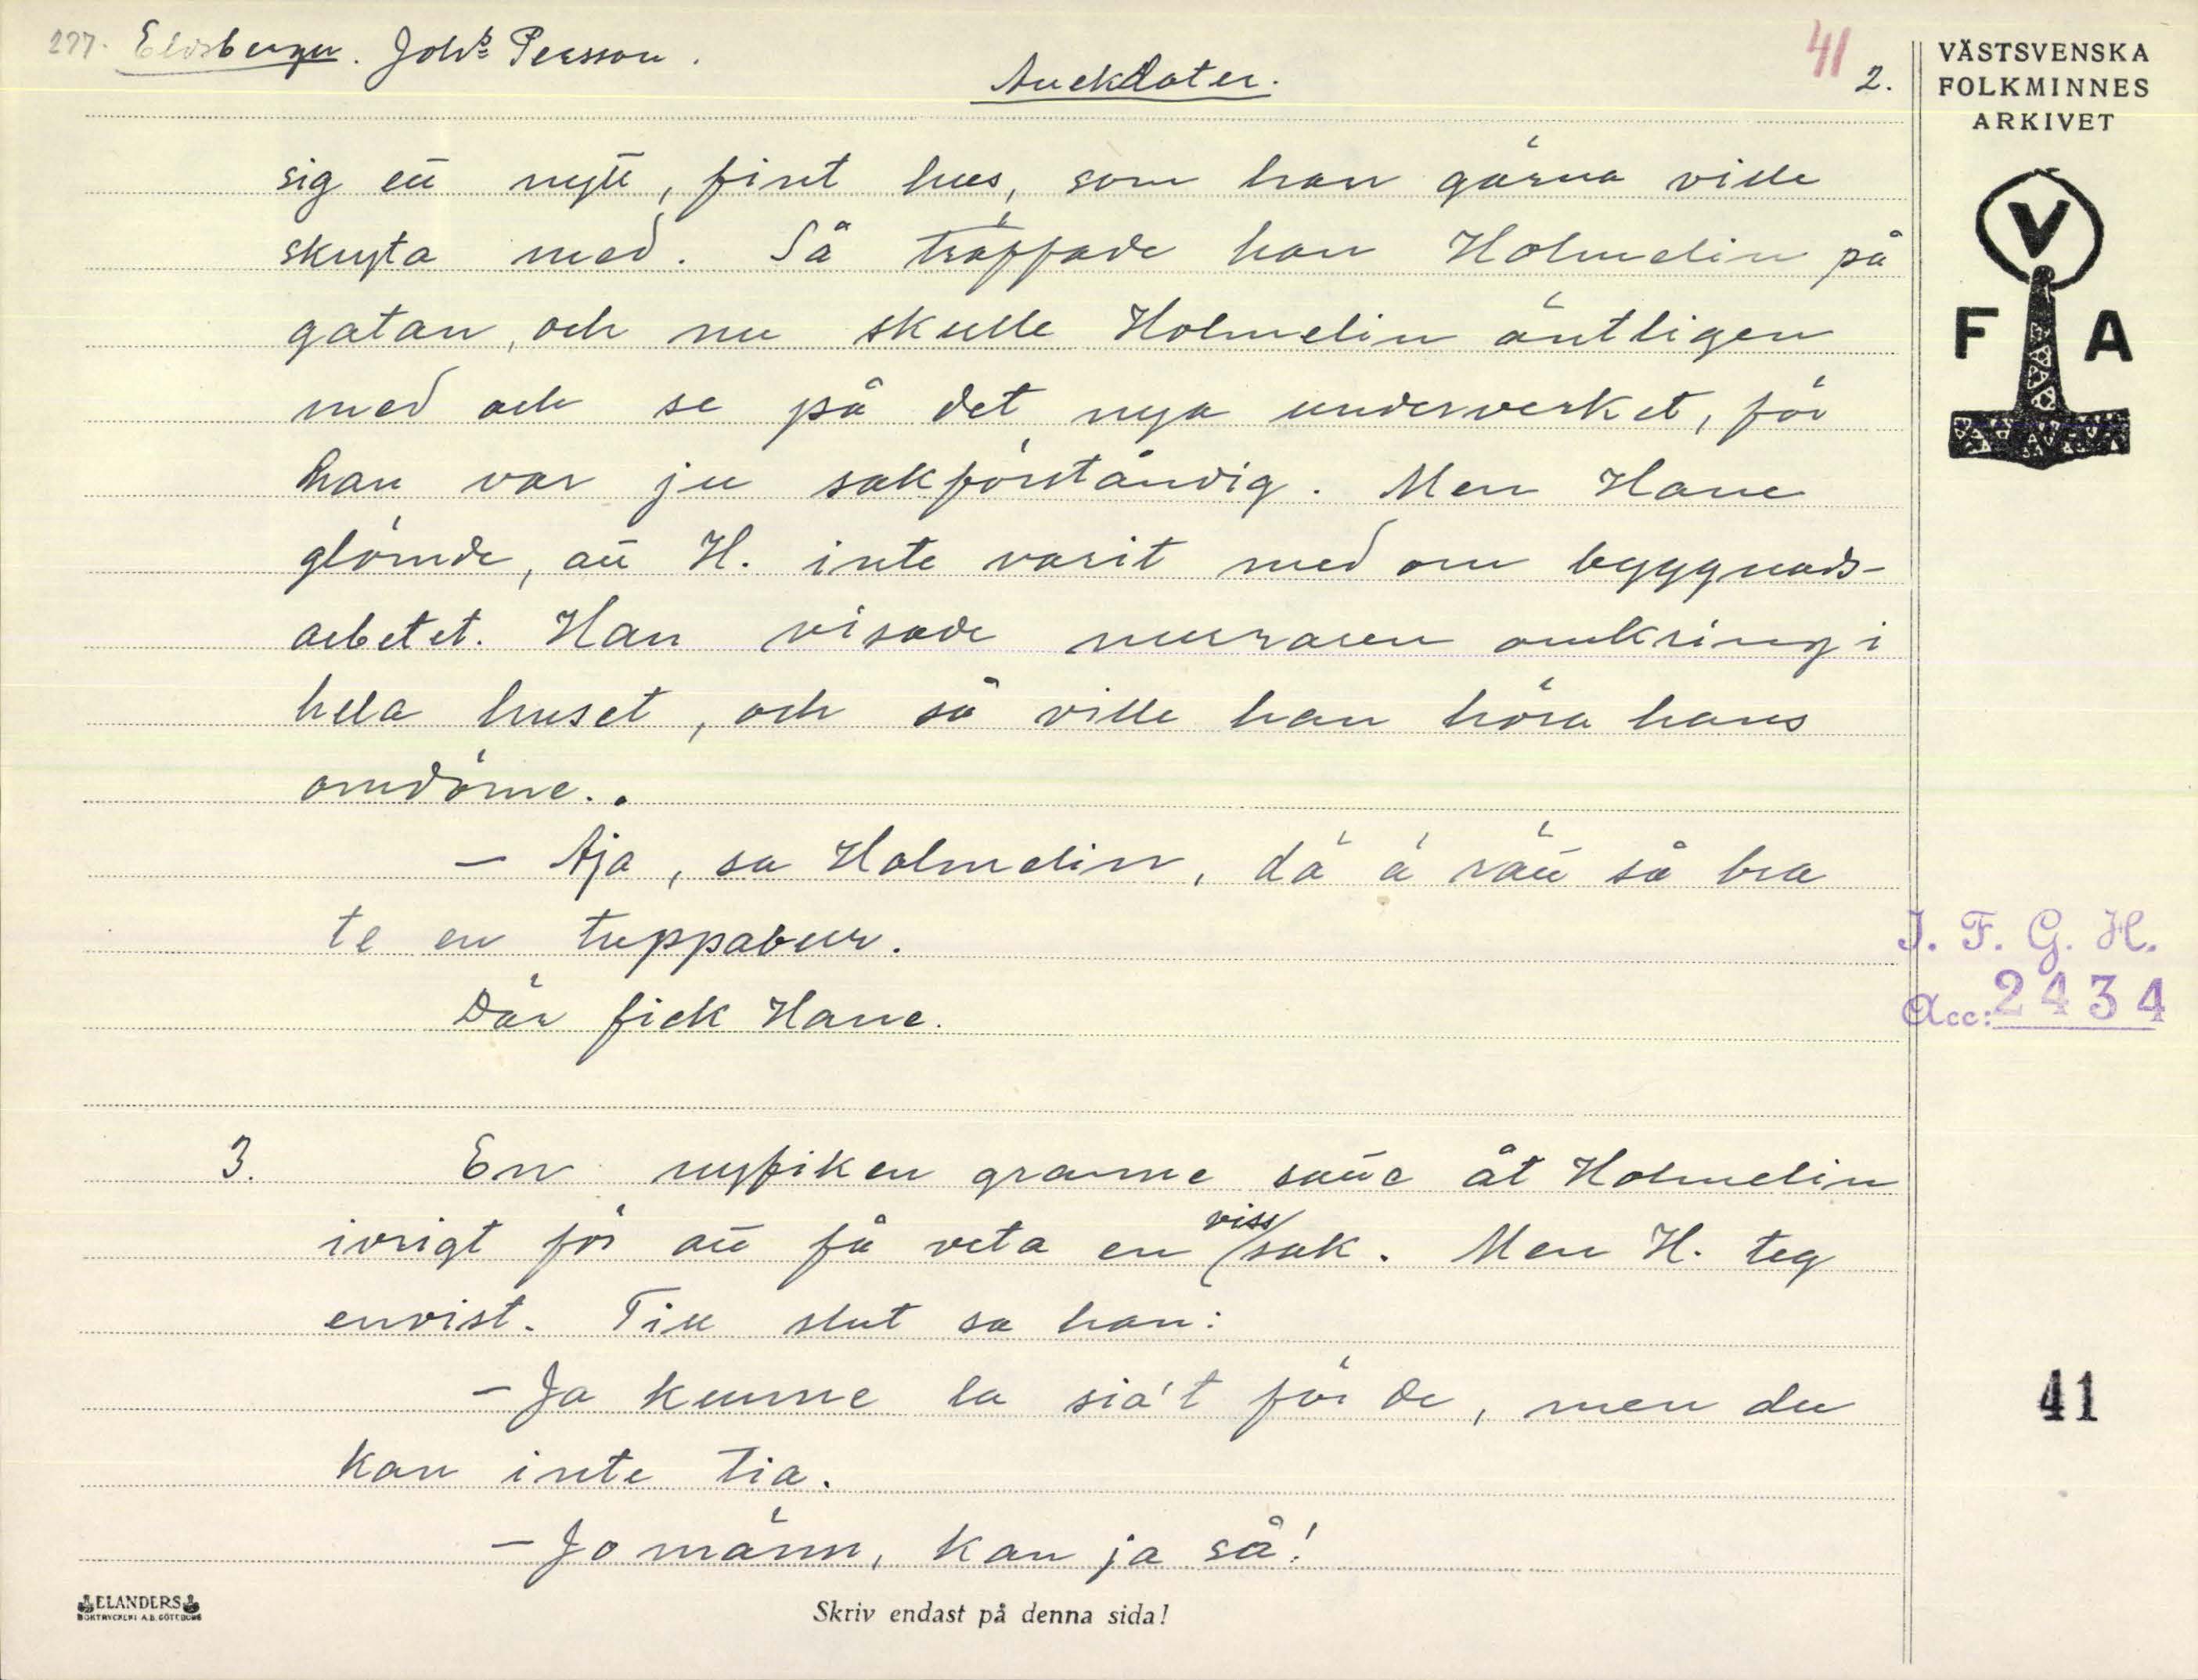 277. Elvsberger. Johs Persson.
Anekdoter.
41
2.
VÄSTSVENSKA
FOLKMINNES
ARKIVET
sig ett nytt, fint hus, som han gärna ville
skryta med. Så träffade han Holmelin på
gatan, och nu skulle Holmelin äntligen
med och se på det nya underverket, för
han var ju sakförståndig. Men Hane
glömde, att H. inte varit med om byggnads-
arbetet. Han visade muraren omkring i
hela huset, och så ville han höra hans
omdöme..
— Aja, sa Holmelin, dä ä rätt så bra
te en tuppabur.
Där fick Hane.
3. En nyfiken granne satte åt Holmelin
ivrigt för att få veta en viss sak. Men H. teg
envist. Till slut sa han:
— Ja kunne la sia't för de, men du
kan inte tia.
— Jo männ, kan ja så!
V
F A
I. F. G. H.
Acc: 2434
41
ELANDERS
BOKTRYCKERI A.B. GÖTEBORG
Skriv endast på denna sida!